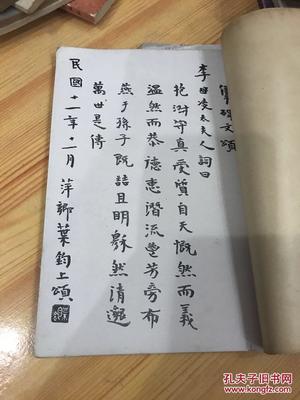 集碑文頌
李母凌太夫人詞曰
抱淑守真受質自天慨然而義
溫然而恭德惠潛流豊芳旁布
燕于孫子既喆且明然清邈
萬世是傳
民國十一年十二月 萍鄉葉鈞上頌
孔夫子旧书网